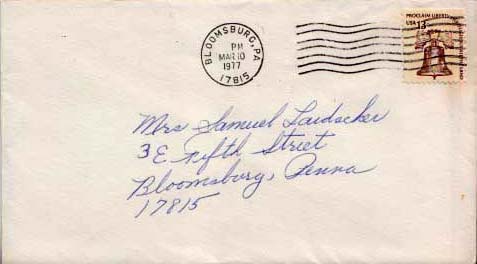 BLOOMSBURG, PA
PM
MAR 10
1977
17815
PROCLAIM LIBERTY
USA 13c
Mrs Samuel Laidacker
3 E Fifth Street
Bloomsburg, Penna
17815